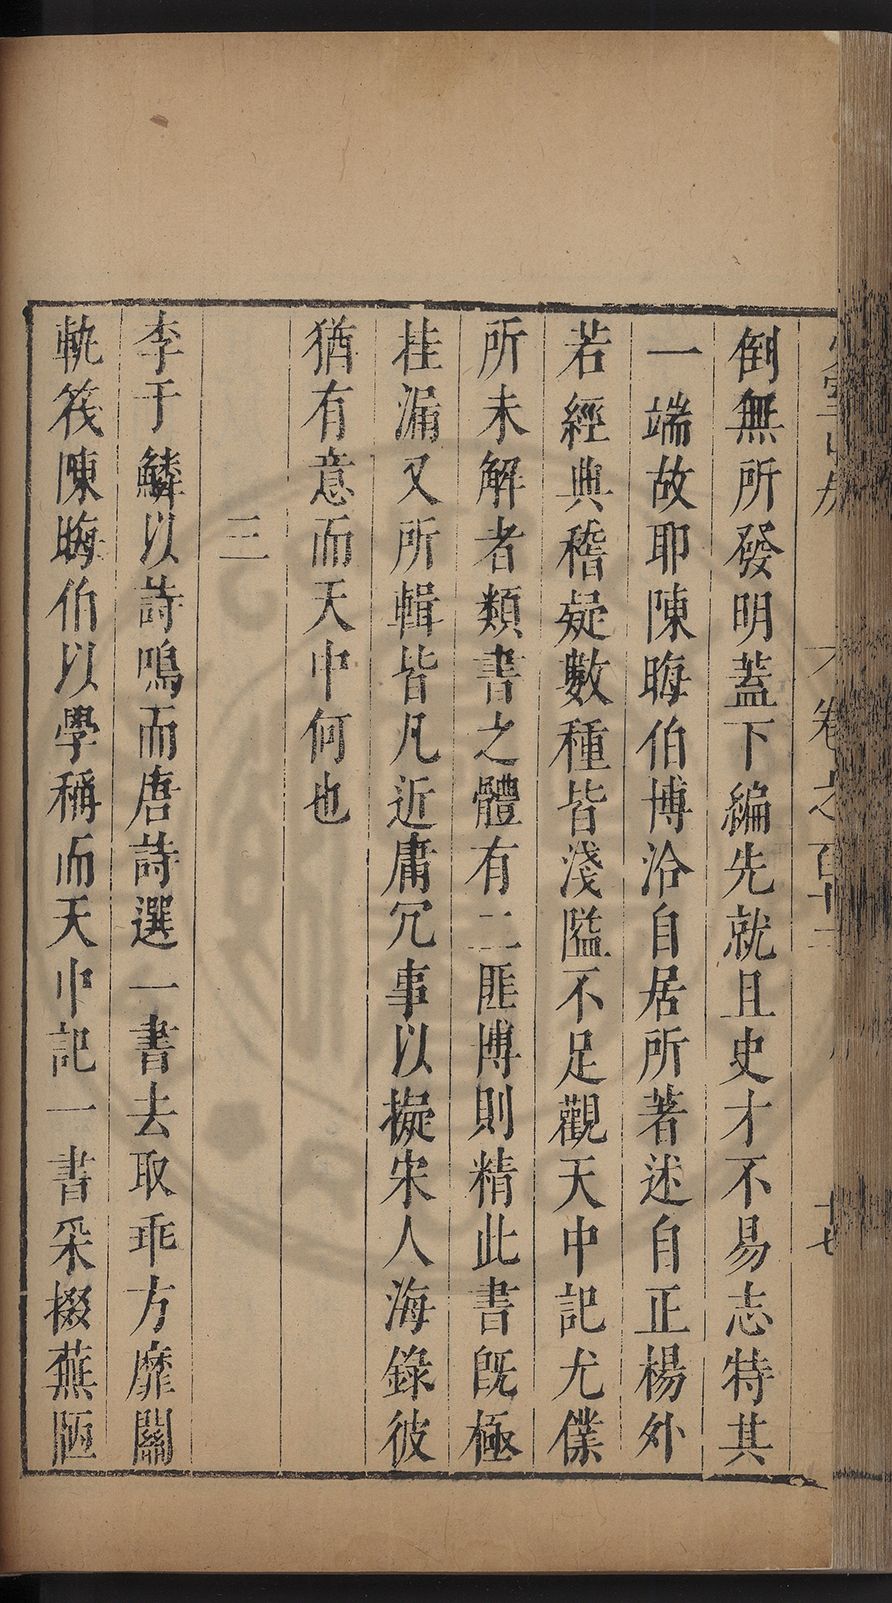 倒無所發明蓋下編先就且史才不易志特其
一端故耶陳晦伯博洽自居所著述自正楊外
若經典稽疑數種皆淺隘不足觀天中記尤僕
所未解者類書之體有二匪博則精此書旣極
挂漏又所輯皆凡近庸冗事以擬宋人海錄彼
猶有意而天中何也
三
李于鱗以詩鳴而唐詩選一書去取乖方靡關
軌筏陳晦伯以學稱而天中記一書采掇蕪陋
卷之百十二
十七